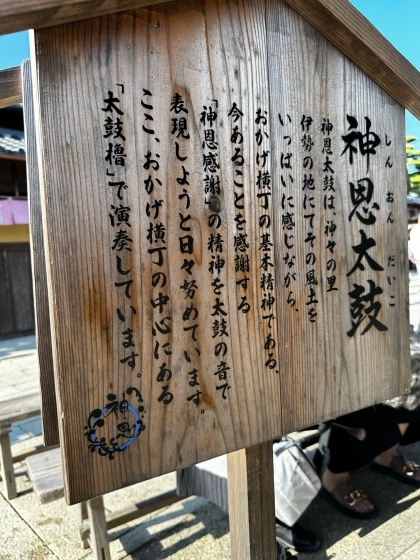 しんおんだいこ
神恩太鼓
神恩太鼓は、神々の里
伊勢の地にてその風土を
いっぱいに感じながら、
おかげ横丁の基本精神である、
今あることを感謝する
「神恩感謝」の精神を太鼓の音で
表現しようと日々努めています。
ここ、おかげ横丁の中心にある
「太鼓櫓」で演奏しています。
神恩